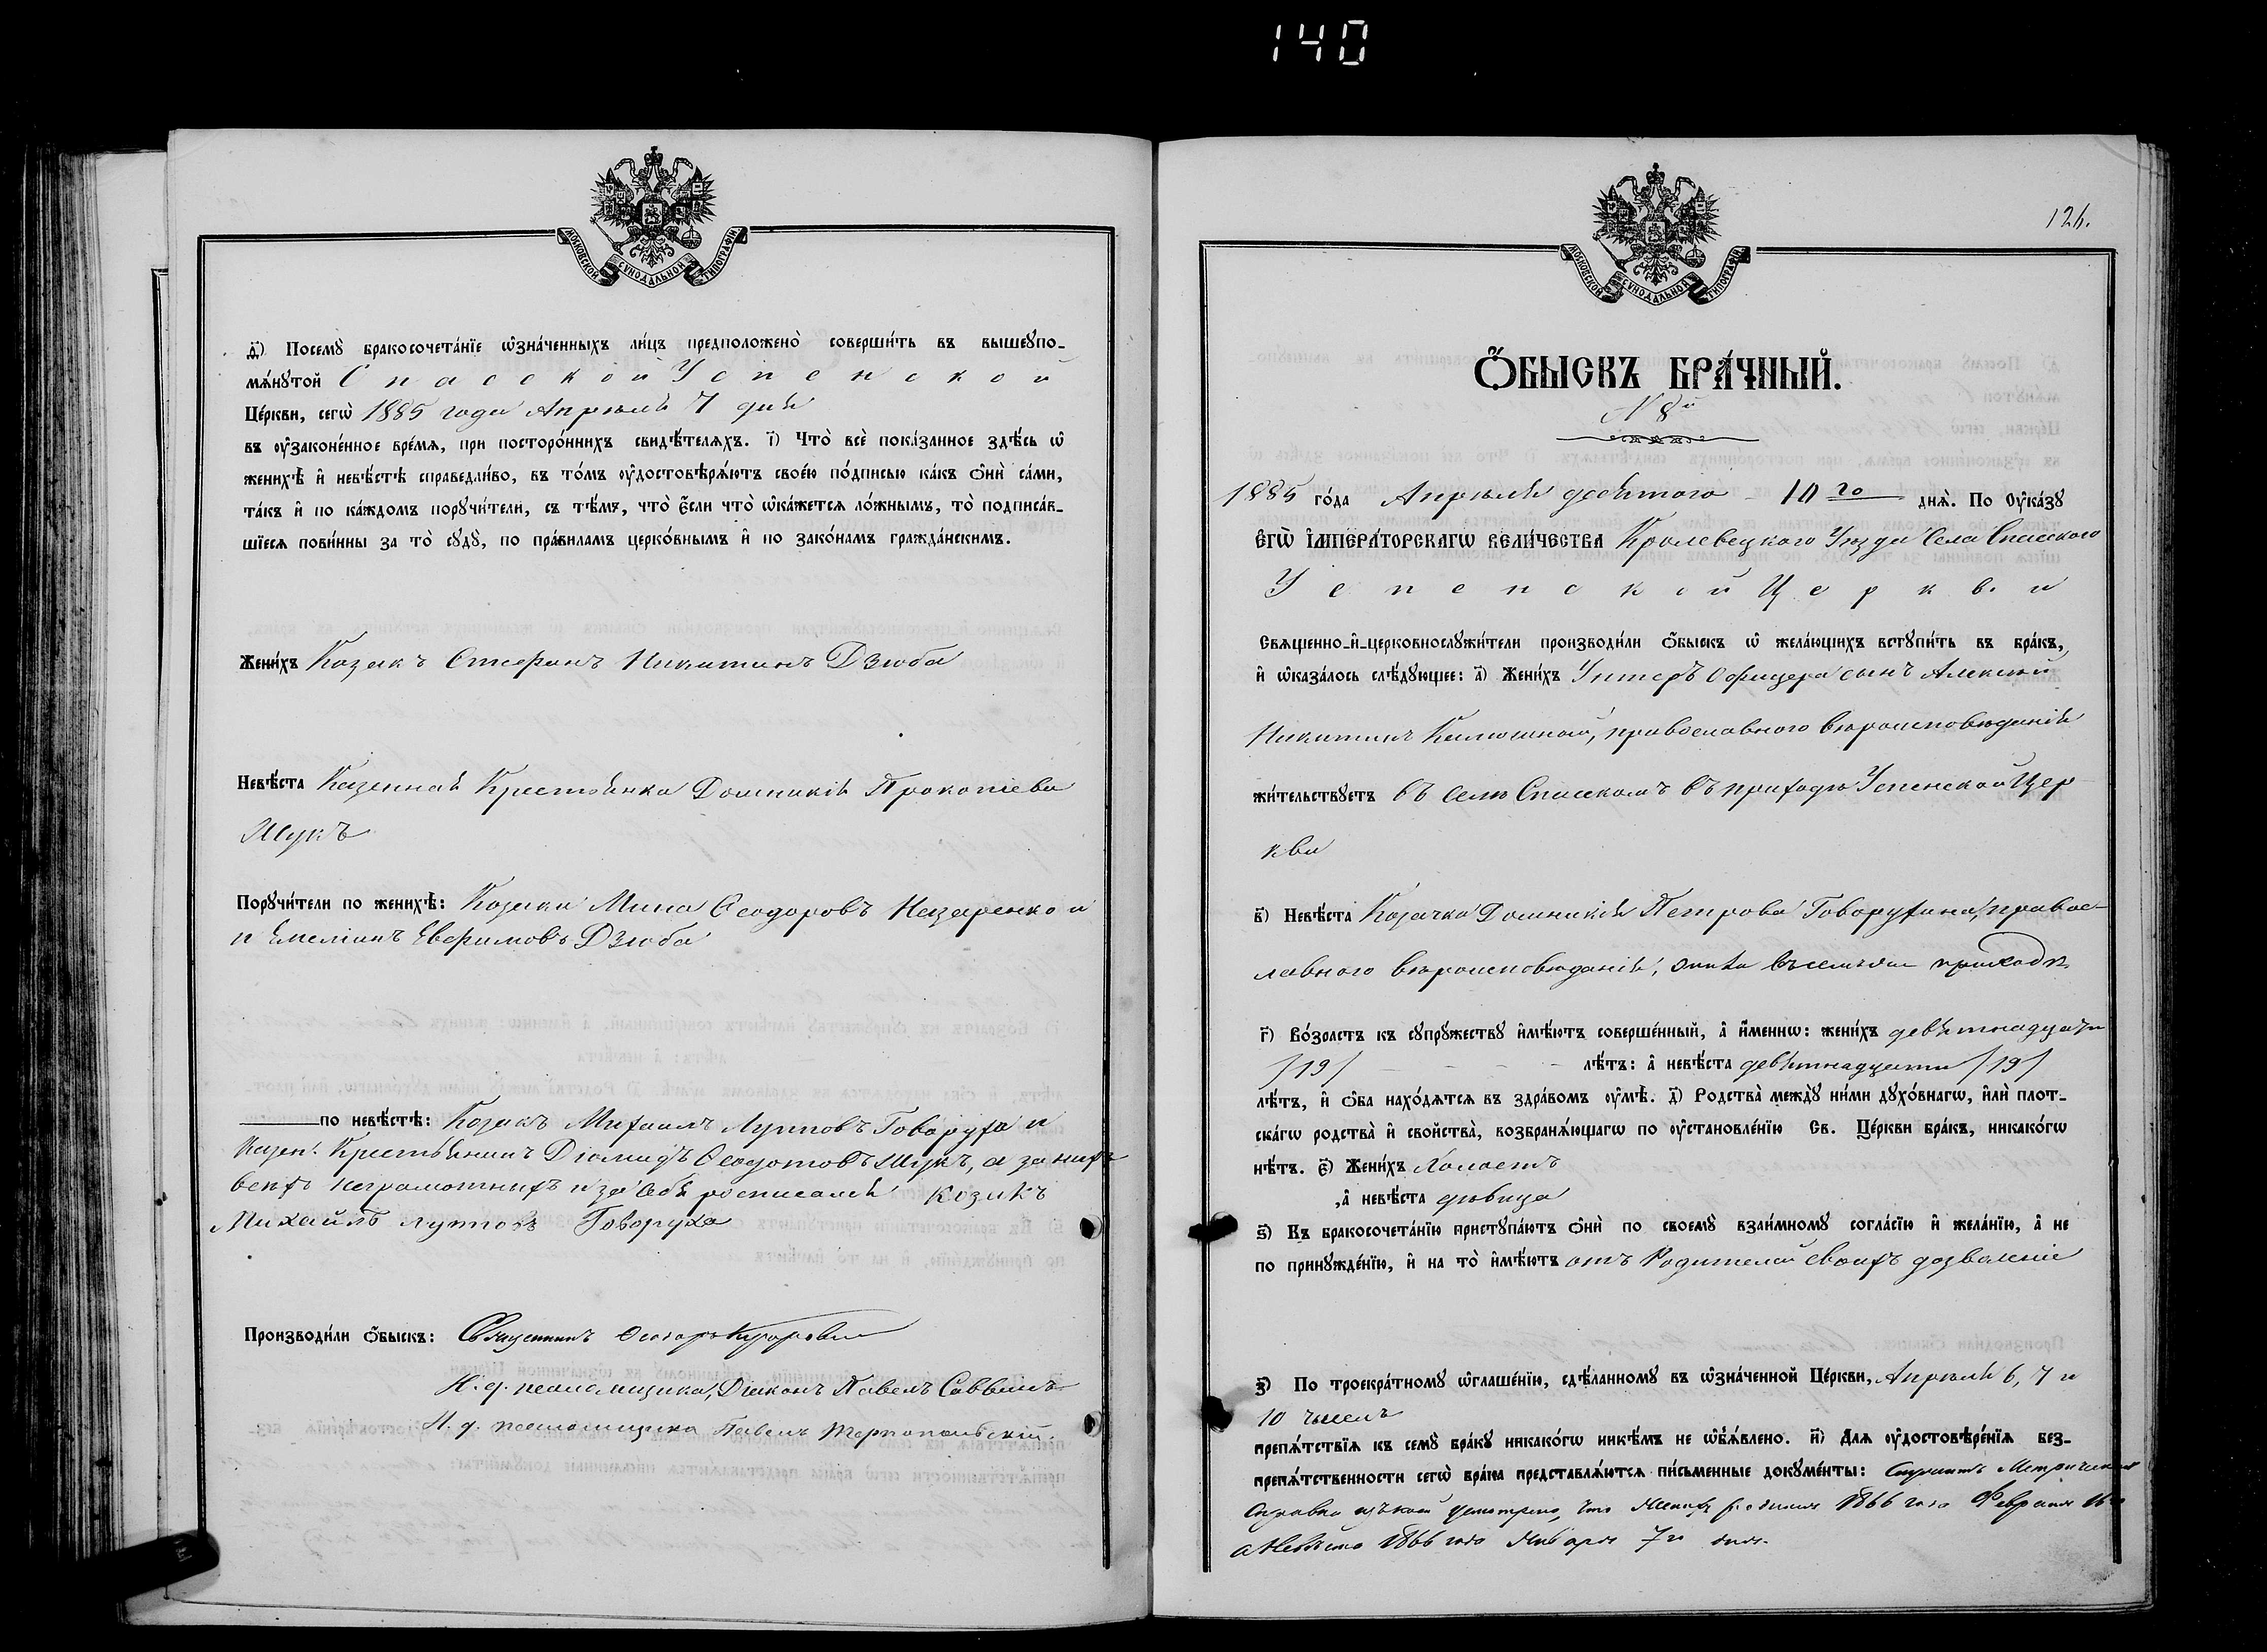 140
МОСКОВСКОЙ СѴНОДАЛЬНОЙ ТИПОГРАФІИ
д҃) Посемꙋ̀ бракосочета́нїе ѡ҆зна́ченныхъ ли́цъ предположено̀ соверши́ть въ вышеꙋпо-
мѧ́нꙋтой Спасской Успенской
Це́ркви, сегѡ̀ 1885 года Апрѣля 7 дня
въ ᲂу҆законе́нное вре́мѧ, при посторо́ннихъ свидѣ́телѧхъ. і҃) Что̀ всѐ пока́занное здѣ́сь ѡ҆
женихѣ̀ и҆ невѣ́стѣ справедли́во, въ то́мъ ᲂу҆достовѣрѧ́ютъ свое́ю по́дписью ка́къ ѻ҆нѝ са́ми,
та́къ и҆ по ка́ждомъ порꙋчи́тели, съ тѣ́мъ, что̀ є҆́сли что̀ ѡ҆ка́жетсѧ ло́жнымъ, то̀ подписа́в-
шїесѧ пови́нны за то̀ сꙋдꙋ̀, по пра́виламъ церко́внымъ и҆ по зако́намъ гражда́нскимъ.
Жени́хъ Козакъ Стефанъ Никитинъ Дзюба
Невѣ́ста Казенная Крестьянка Домникія Прокопіева
Щукъ
Порꙋчи́тели по женихѣ̀: Козаки Мина Ѳеодоровъ Назаренко и
и Емеліанъ Евфимовъ Дзюба
по невѣ́стѣ: Козакъ Михаилъ Луповъ Говоруха и
Казен. Крестьянинъ Діомидъ Ѳеодотовъ Щукъ, а за нихъ
всехъ неграмотныхъ и за себя росписался козакъ
Михайлъ Луповъ Говоруха
Производи́ли ѻ҆́быскъ: Священникъ Ѳеодоръ
И. д. псаломщика, Діаконъ Павелъ Саввинъ
И. д. псаломщика Павелъ Тернопольскій.
126.
МОСКОВСКОЙ СѴНОДАЛЬНОЙ ТИПОГРАФІИ
Ѻ҆́БЫСКЪ БРА́ЧНЫЙ.
№ 8й
1885 го́да Апрѣля десятого 10го днѧ̀. По ᲂу҆ка́зꙋ
Є҆ГѠ̀ І҆МПЕРА́ТОРСКАГѠ ВЕЛИ́ЧЕСТВА Кролевецкого Уѣзда Села Спасского
Успенской Церкви
Свѧщенно-и҆-церковнослꙋжи́тели производи́ли ѻ҆́быскъ ѡ҆ жела́ющихъ встꙋпи́ть въ бра́къ,
и҆ ѡ҆каза́лось слѣ́дꙋющее: а҃) Жени́хъ Унтеръ Офицера сынъ Алексѣй
Никитинъ Калюшной, православного вѣроисповѣданія
жи́тельствꙋетъ въ Селѣ Спасскомъ въ приходѣ Успенской Цер
кви
в҃) Невѣ́ста Козачка Домникія Петрова Говорухина, правос-
лавного вѣроисповѣданія, приходѣ.
г҃) Во́зрастъ къ сꙋпрꙋ́жествꙋ и҆мѣ́ютъ соверше́нный, а҆ и҆́меннѡ: жени́хъ девятнадцати
/19/ лѣ́тъ: а҆ невѣ́ста девятнадцати /19/
лѣ́тъ, и҆ ѻ҆́ба нахо́дѧтсѧ въ здра́вомъ ᲂу҆мѣ̀. д҃) Родства̀ междꙋ̀ ни́ми дꙋхо́внагѡ, и҆лѝ плот-
ска́гѡ родства̀ и҆ сво́йства̀, возбранѧ́ющагѡ по ᲂу҆становле́нїю Св. Це́ркви бра́къ, никако́гѡ
нѣ́тъ. є҃) Жени́хъ Холостъ
,а҆ невѣ́ста дѣвица
ѕ҃) Къ бракосочета́нїю пристꙋпа́ютъ ѻ҆нѝ по своемꙋ̀ взаи́мномꙋ согла́сїю и҆ жела́нїю, а҆ не
по принꙋжде́нїю, и҆ на то̀ и҆мѣ́ютъ отъ Родителей своихъ дозволеніе
з҃) По троекра́тномꙋ ѡ҆глаше́нїю, сдѣ́ланномꙋ въ ѡ҆зна́ченной Це́ркви, Апрѣля 6, 7 и
10 числъ
препѧ́тствїѧ къ семꙋ̀ бра́кꙋ никако́гѡ никѣ́мъ не ѡ҆б̾ѧ́влено. и҃) Длѧ ᲂу҆достовѣре́нїѧ без-
препѧ́тственности сегѡ̀ бра́ка представлѧ́ютсѧ пи́сьменные докꙋме́нты: Служитъ Метрическая
Справка изъ коей усмотрено, что Женихъ родился 1866 года Февраля 16го
а Невѣста 1866 года Января 7го дня.